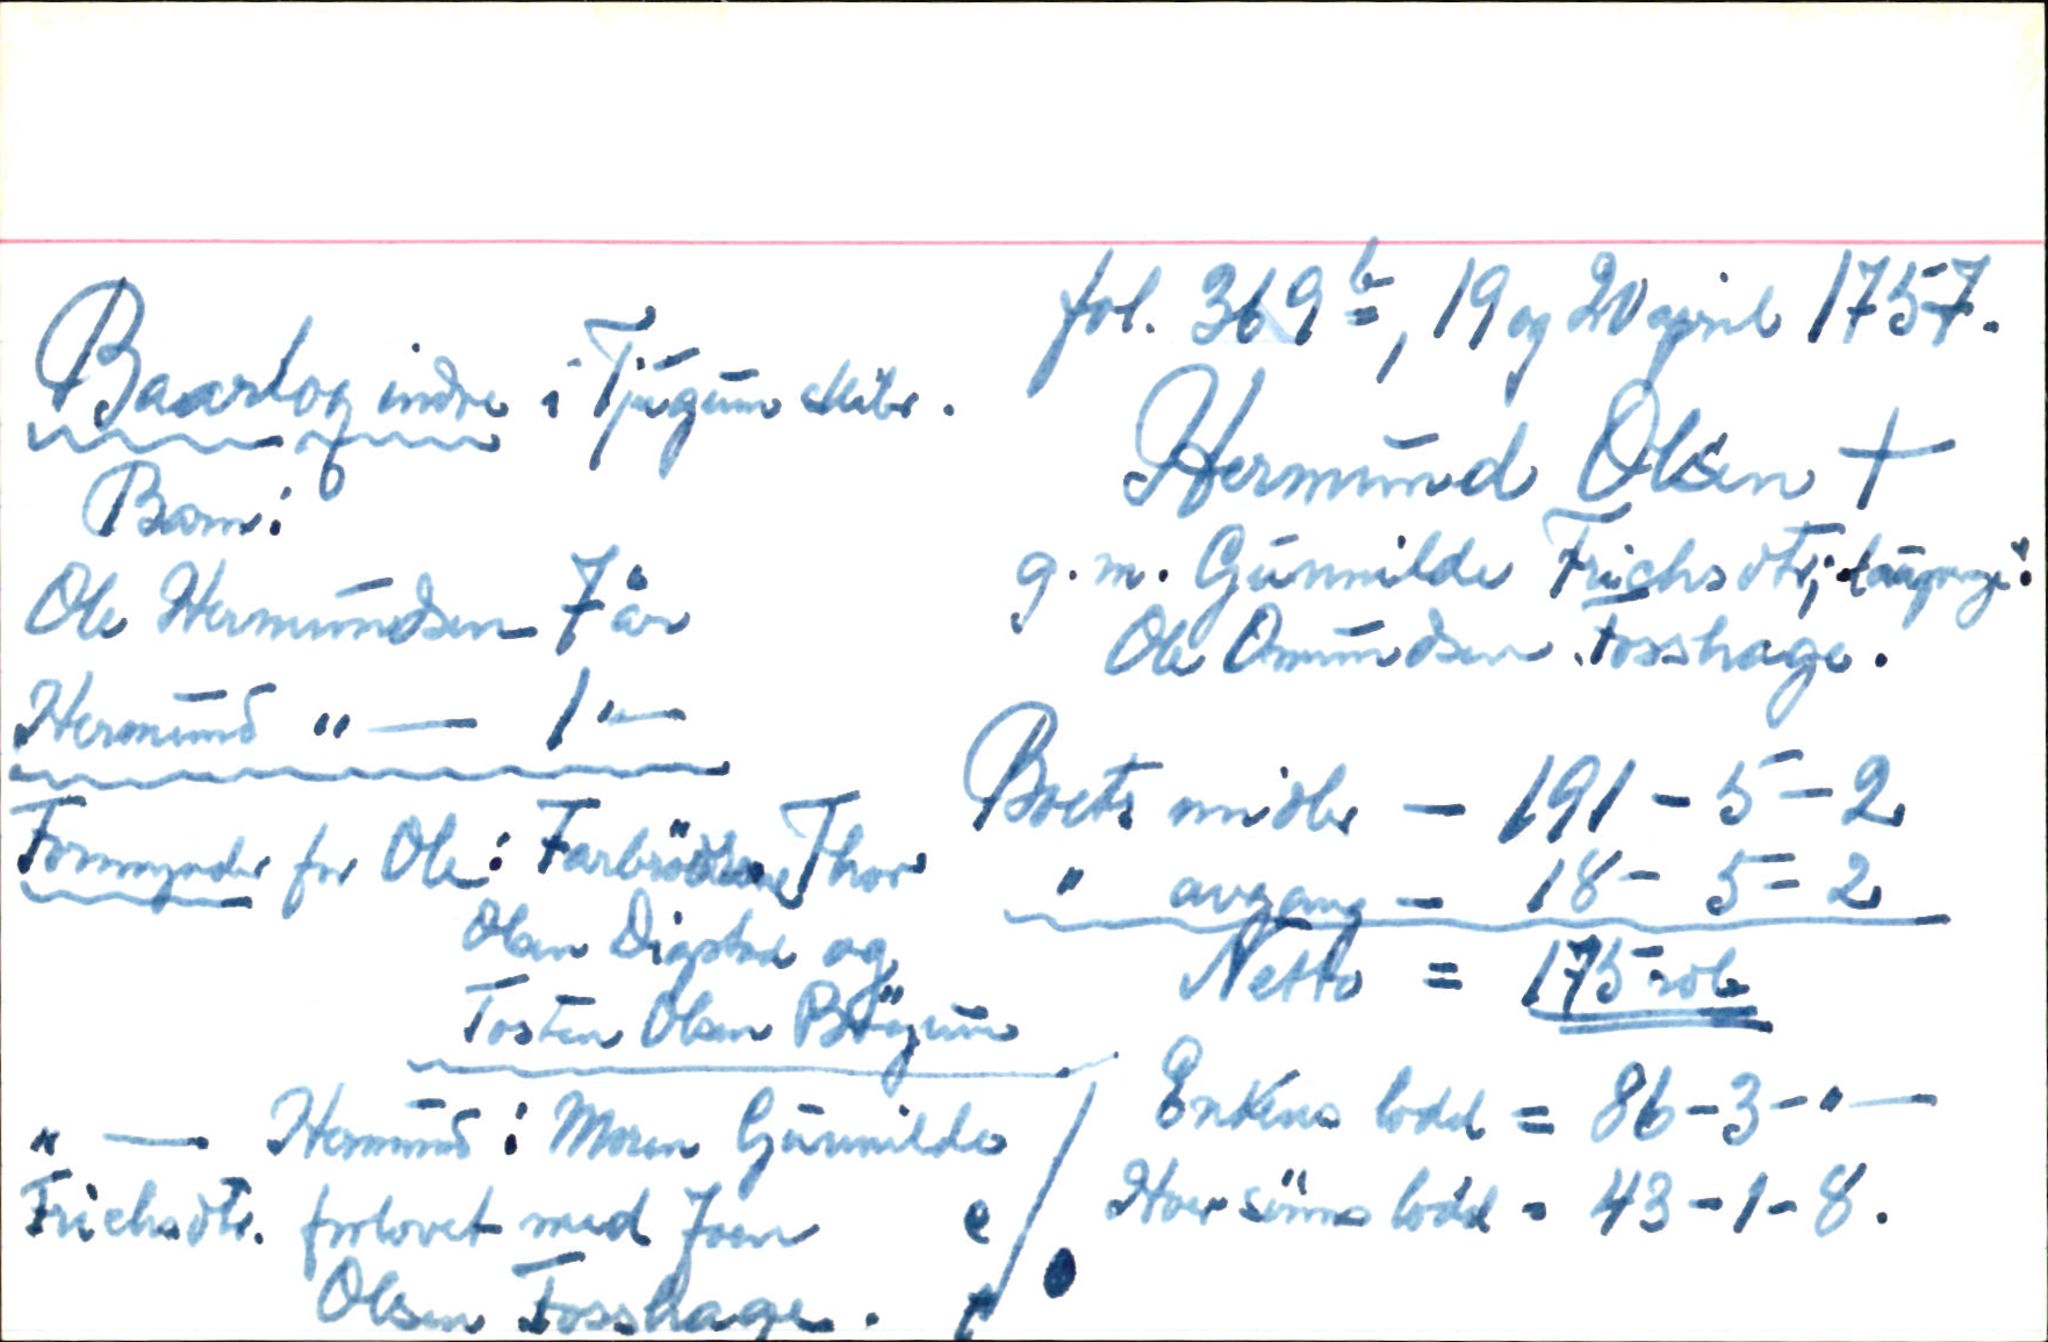 fol. 369b, 19 og 20 april 1757.
Baarlog indre i Tjugum skibr.
Hermund Olsen +
g. m. Gunnilde Frichsdtr; laugvge:
Ole Omundsen Fosshage.
Barn:
Ole Hermundsen 7 år
Hermund " — 1 " —
Formynder for Ole: Farbrödrene Thor
Olsen Digstad og
Tosten Olsen Böyum
" — Hermund: Moren Gunnilde
Frichsdtr. forlovet med Joen
Olsen Fosshage.
Boets midler — 191 - 5 - 2
" avgang — 18 - 5 - 2
Netto = 175 rdl
Enkens lodd = 86 - 3 - " —
Hver söns lodd = 43 - 1 - 8.